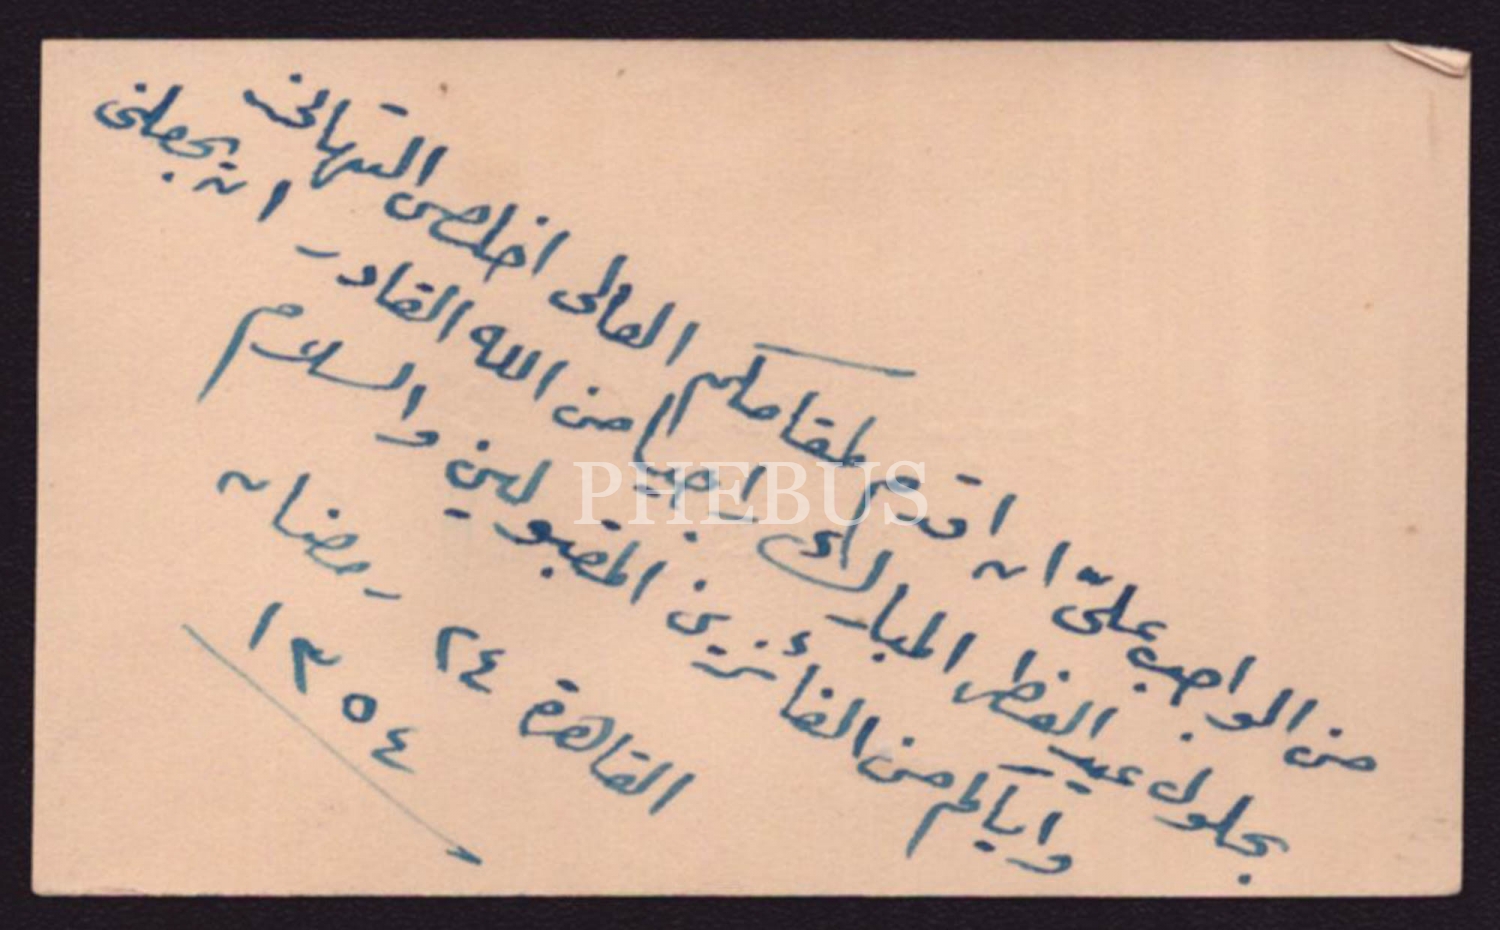 من الواجب علىّ ان اقدم لمقامكم العالى اخلص التهانى
بحلول عيد الفطر المبارك راجيا من الله القادر ان يجعلنى
واياكم من الفائزين المقبولين والسلام
القاهرة ٢٤ رمضان
١٣٥٤
PHEBUS